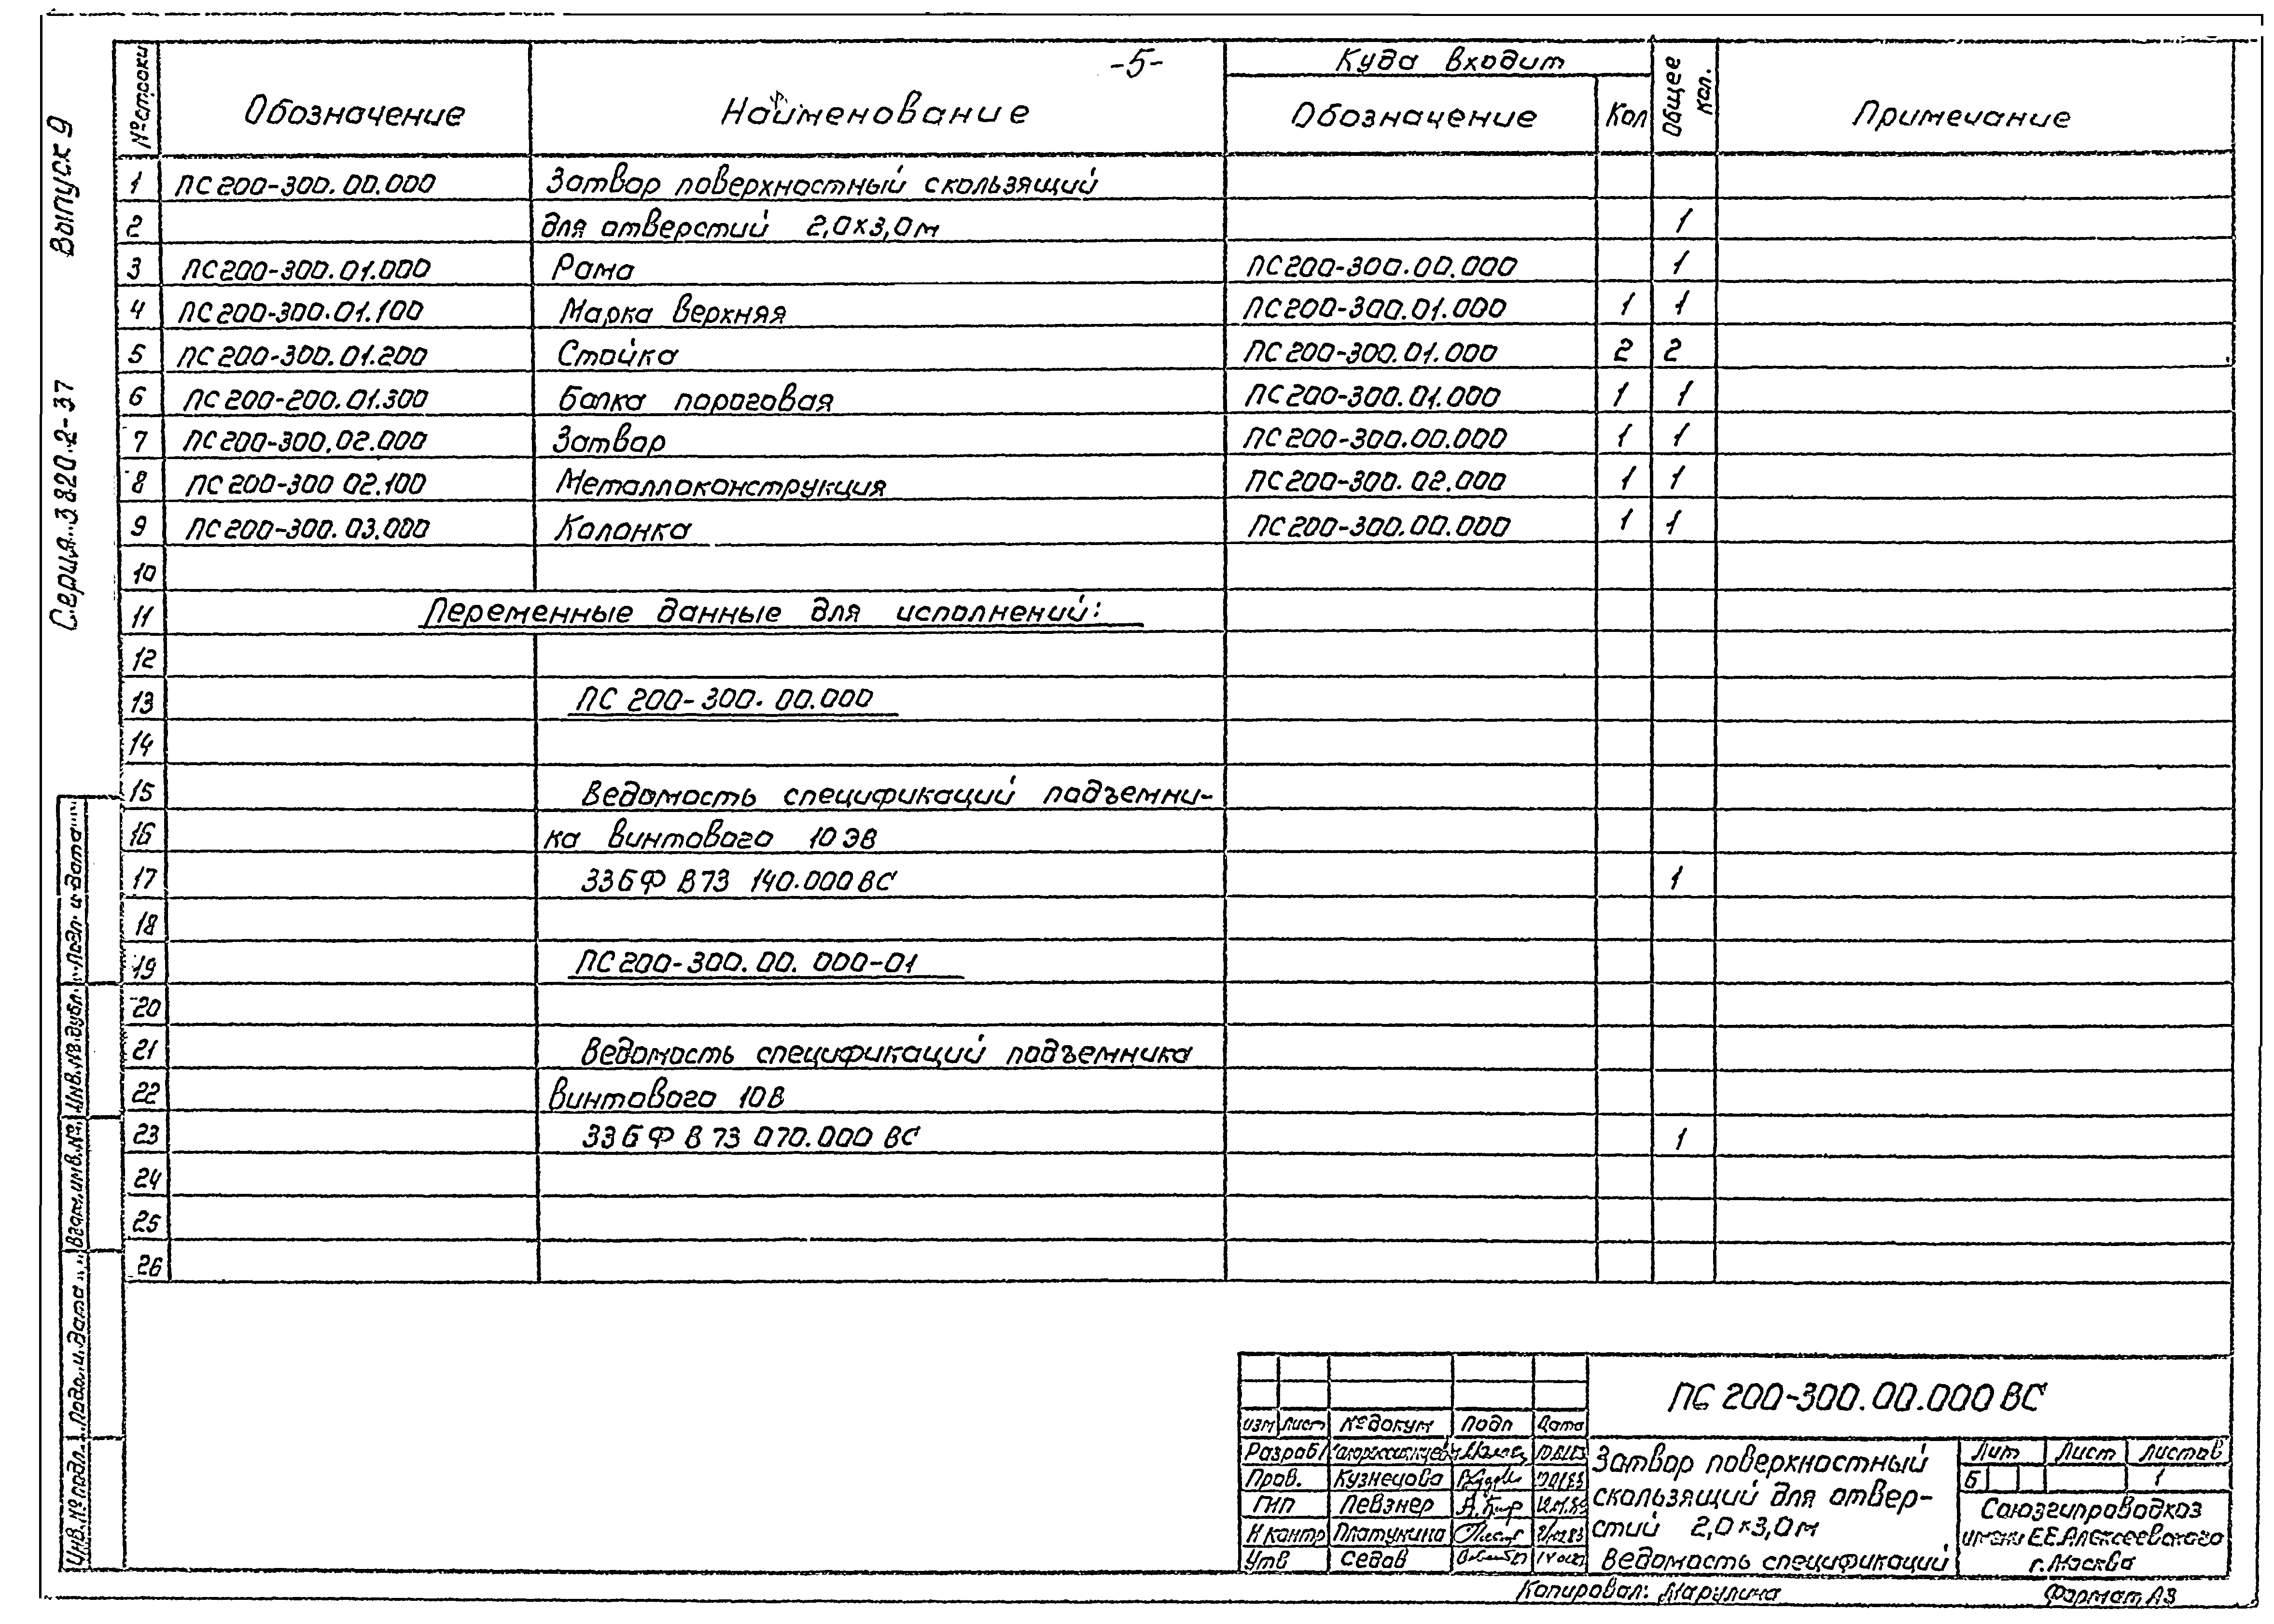 -5-
Выпуск 9
Серия 3.820.2-37
№ строки
Обозначение
Наименование
Куда входит
Обозначение
Кол
Общее кол.
Примечание
1 ПС200-300.00.000 Затвор поверхностный скользящий
2 для отверстий 2,0×3,0м 1
3 ПС200-300.01.000 Рама ПС200-300.00.000 1
4 ПС200-300.01.100 Марка верхняя ПС200-300.01.000 1 1
5 ПС200-300.01.200 Стойка ПС200-300.01.000 2 2
6 ПС200-200.01.300 Балка пороговая ПС200-300.01.000 1 1
7 ПС200-300.02.000 Затвор ПС200-300.00.000 1 1
8 ПС200-300 02.100 Металлоконструкция ПС200-300.02.000 1 1
9 ПС200-300.03.000 Колонка ПС200-300.00.000 1 1
10
11 Переменные данные для исполнений:
12
13 ПС 200-300.00.000
14
15 Ведомость спецификаций подъемни-
16 ка винтового 10ЭВ
17 33БФ В73 140.000ВС 1
18
19 ПС200-300.00.000-01
20
21 Ведомость спецификаций подъемника
22 винтового 10В
23 33БФ В73 070.000 ВС 1
24
25
26
Подп. и дата
Инв.№ дубл.
Взам.инв.№
Подп. и дата
Инв.№ подл.
ПС 200-300.00.000 ВС
Изм Лист №докум Подп Дата
Разраб
Пров. Кузнецова
ГИП Левзнер
Н.контр Платунина
Утв Седов
Затвор поверхностный
скользящий для отвер-
стий 2,0×3,0м
Ведомость спецификаций
Лит Лист Листов
Б 1
Союзгипроводхоз
имени Е.Е.Алексеевского
г.Москва
Копировал: Марулина
Формат А3